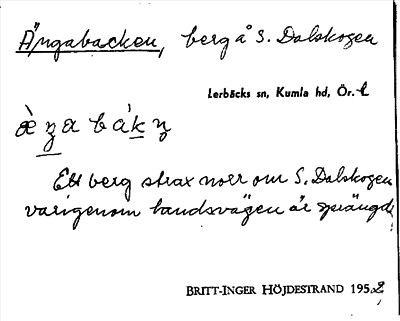 Ängabacken, berg å S. Dalskogen
Lerbäcks sn, Kumla hd, Ör. l
æ̀ŋabákn̥
Ett berg strax norr om S. Dalskogen
varigenom landsvägen är sprängd.
BRITT-INGER HÖJDESTRAND 1952